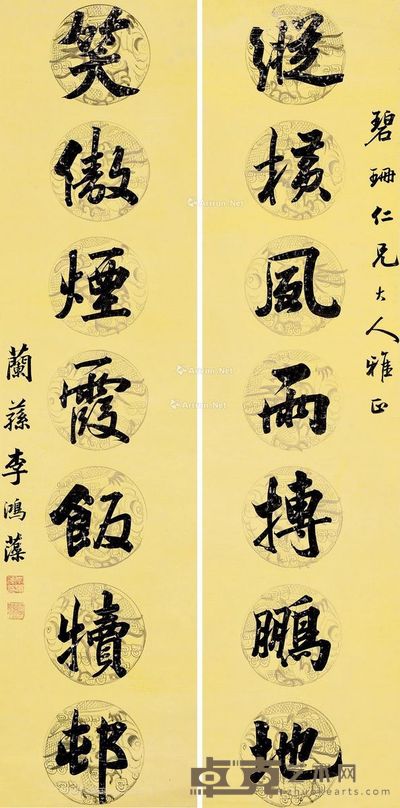 碧珊仁兄大人雅正
縱橫風雨摶鵬地
笑傲煙霞飯犢邨
蘭蓀李鴻藻
卓克艺术网